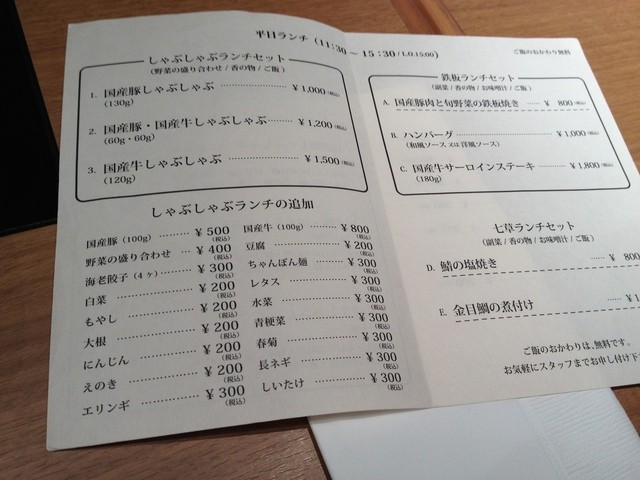 平日ランチ (11:30～15:30/L.O.15:00)
しゃぶしゃぶランチセット
(野菜の盛り合わせ / 香の物 / ご飯 )
1. 国産豚しゃぶしゃぶ ¥1,000(税込)
(130g)
2. 国産豚・国産牛しゃぶしゃぶ ¥1,200(税込)
(60g・60g)
3. 国産牛しゃぶしゃぶ ¥1,500(税込)
(120g)
しゃぶしゃぶランチの追加
国産豚 (100g) ¥500(税込)
野菜の盛り合わせ ¥400(税込)
海老餃子 (4ヶ) ¥300(税込)
白菜 ¥200(税込)
もやし ¥200(税込)
大根 ¥200(税込)
にんじん ¥200(税込)
えのき ¥200(税込)
エリンギ ¥300(税込)
国産牛 (100g) ¥800(税込)
豆腐 ¥200(税込)
ちゃんぽん麺 ¥300(税込)
レタス ¥300(税込)
水菜 ¥300(税込)
青梗菜 ¥300(税込)
春菊 ¥300(税込)
長ネギ ¥300(税込)
しいたけ ¥300(税込)
ご飯のおかわり無料
鉄板ランチセット
(副菜 / 香の物 / お味噌汁 / ご飯 )
A. 国産豚肉と旬野菜の鉄板焼き ¥800(税込)
B. ハンバーグ ¥1,000(税込)
(和風ソース 又は 洋風ソース)
C. 国産牛サーロインステーキ ¥1,800(税込)
(180g)
七草ランチセット
(副菜 / 香の物 / お味噌汁 / ご飯 )
D. 鯖の塩焼き ¥800
E. 金目鯛の煮付け ¥
ご飯のおかわりは、無料です。
お気軽にスタッフまでお申し付け下